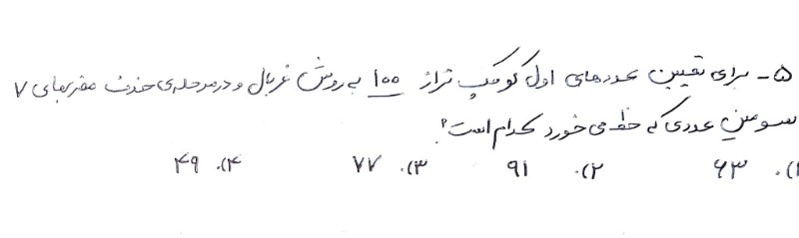 ۵- برای تعیین عددهای اول کوچک‌تر از ۱۰۰ به روش غربال و در مرحله‌ی حذف مضرب‌های ۷
سومین عددی که خط می‌خورد کدام است؟
۱). ۶۳ ۲). ۹۱ ۳). ۷۷ ۴). ۴۹